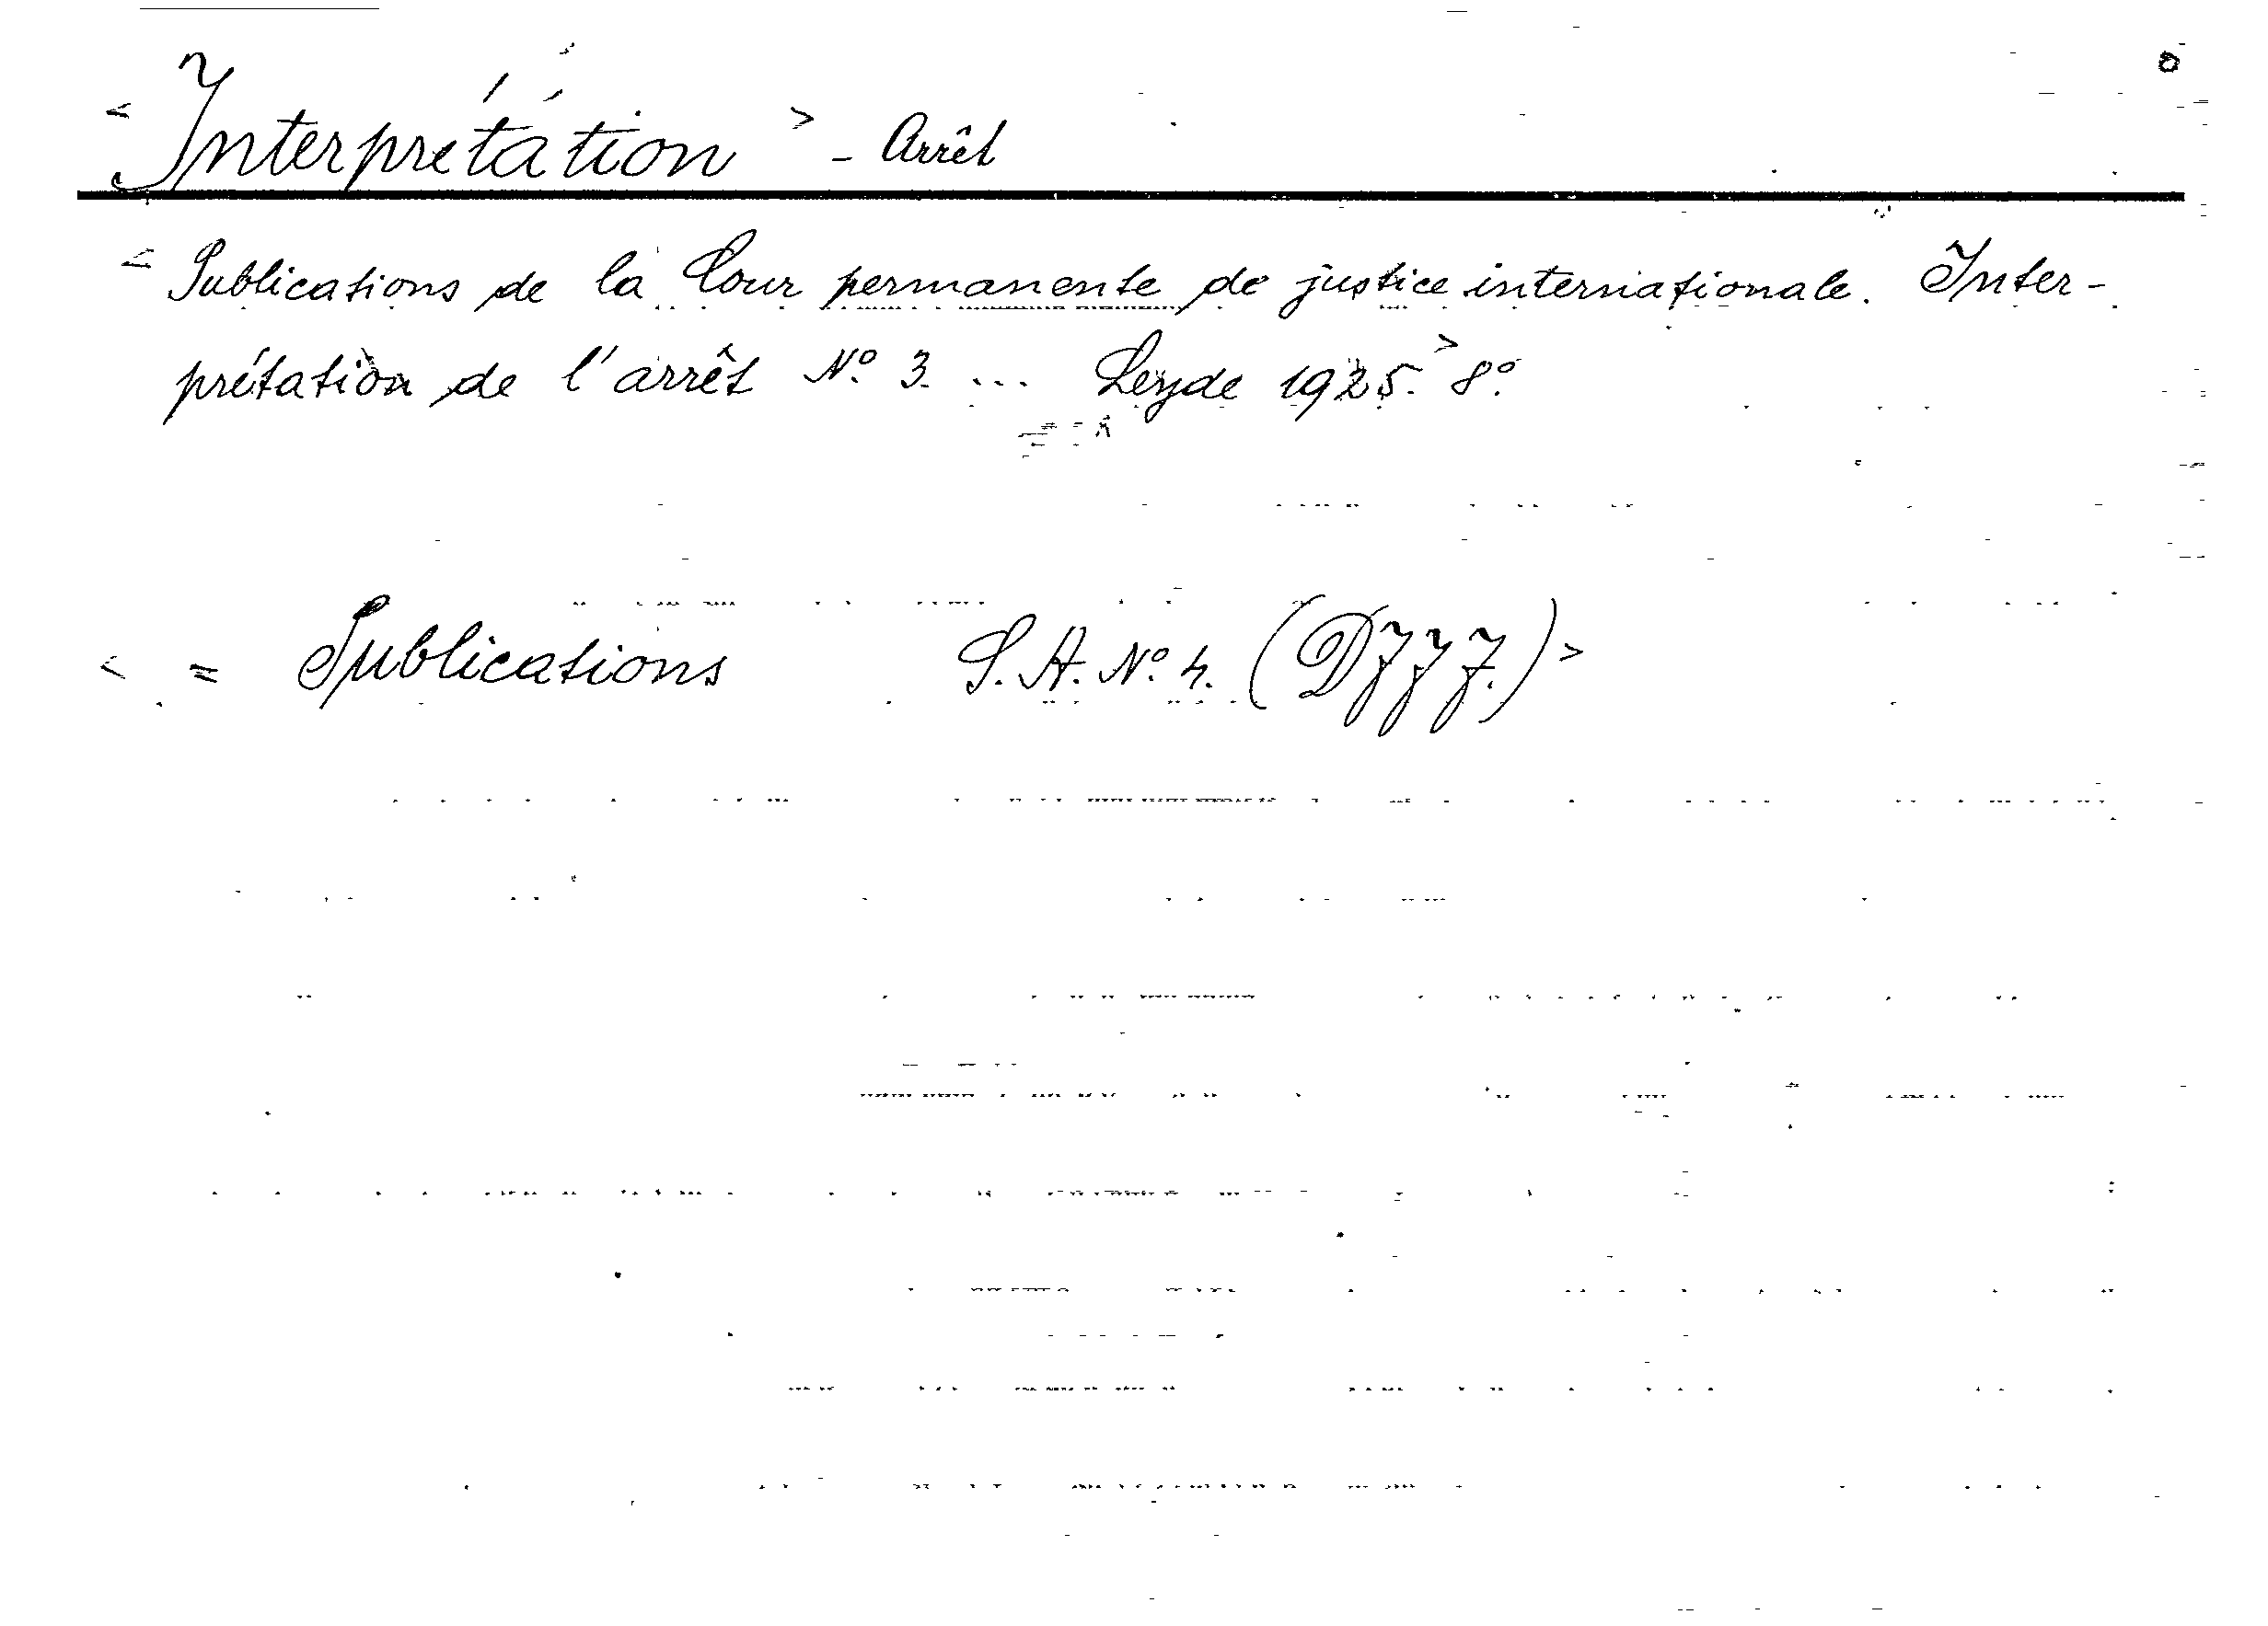 < Interprétation > - Arrêt
< Publications de la Cour permanente de justice internationale. Inter-
prétation de l'arrêt No. 3. ... Leyde 1925. > 8o.
< = Publications S. A. No. 4. (D777.) >